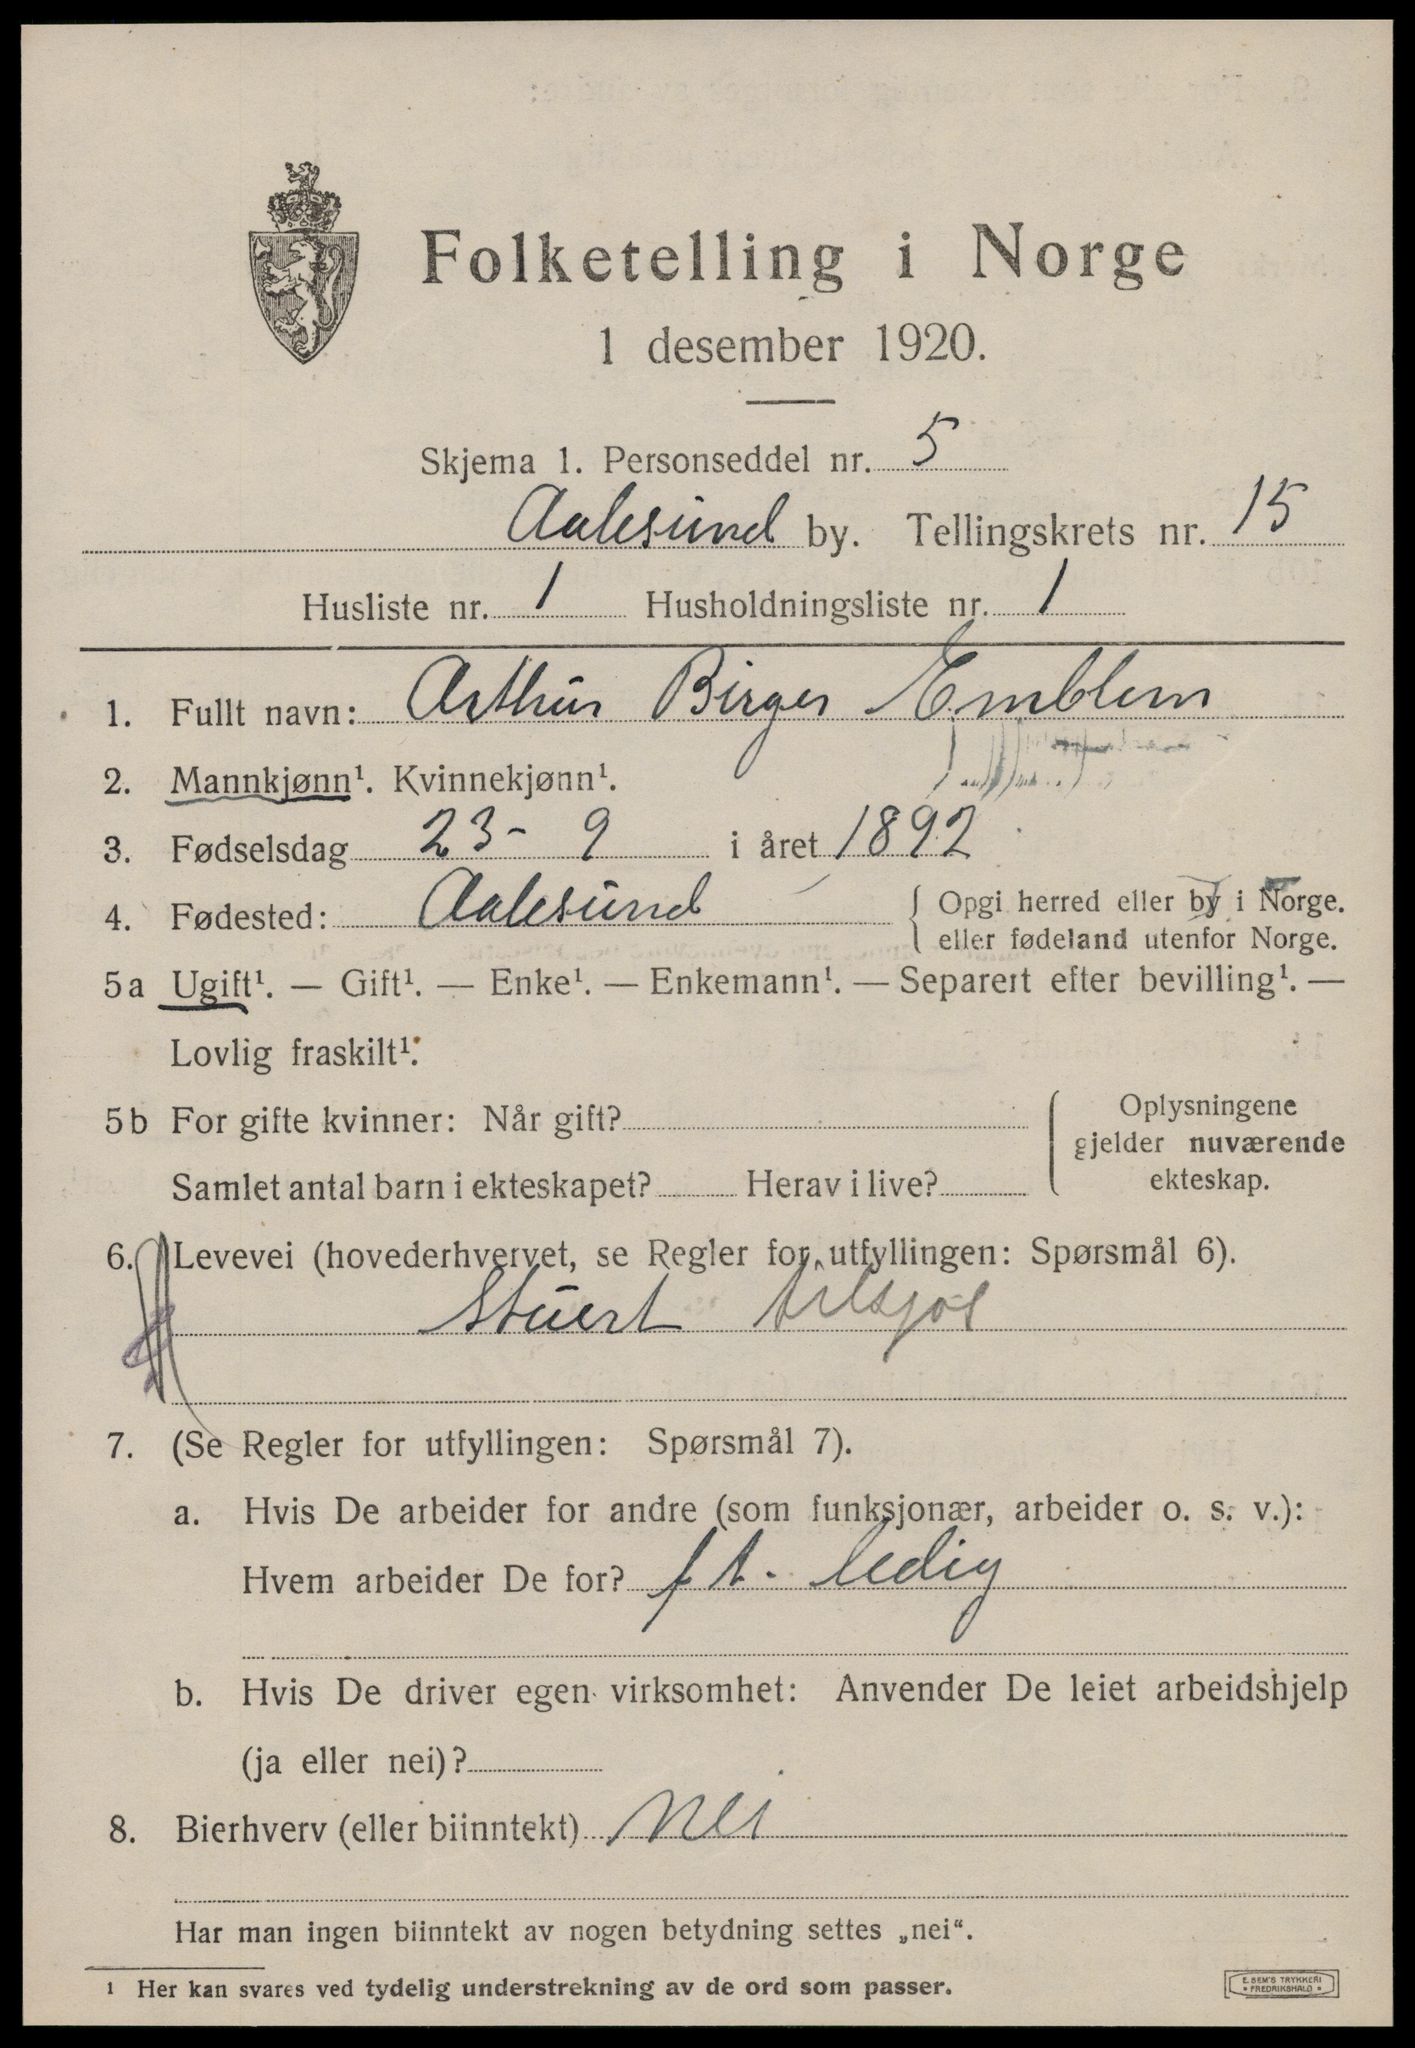 Folketelling i Norge
1 desember 1920.
Skjema 1. Personseddel nr. 5
Aalesund by. Tellingskrets nr. 15
Husliste nr. 1 Husholdningsliste nr. 1
1. Fullt navn: Arthur Birger Emblem
2. Mannkjønn¹. Kvinnekjønn¹.
3. Fødselsdag 23 - 9 i året 1892
4. Fødested: Aalesund { Opgi herred eller by i Norge.
eller fødeland utenfor Norge.
5a Ugift¹. — Gift¹. — Enke¹. — Enkemann¹. — Separert efter bevilling¹. —
Lovlig fraskilt¹.
5b For gifte kvinner: Når gift?
Samlet antal barn i ekteskapet? Herav i live?
Oplysningene
gjelder nuværende
ekteskap.
6. Levevei (hovederhvervet, se Regler for utfyllingen: Spørsmål 6).
Stuert
7. (Se Regler for utfyllingen: Spørsmål 7).
a. Hvis De arbeider for andre (som funksjonær, arbeider o. s. v.):
Hvem arbeider De for? f t. ledig
b. Hvis De driver egen virksomhet: Anvender De leiet arbeidshjelp
(ja eller nei)?
8. Bierhverv (eller biinntekt) Nei
Har man ingen biinntekt av nogen betydning settes „nei“.
¹ Her kan svares ved tydelig understrekning av de ord som passer.
E. SEM'S TRYKKERI
* FREDRIKSHALD *